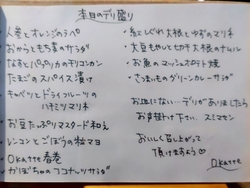 本日のデリ盛り
人参とオレンジのラペ
おからともち麦のサラダ
なすとパプリカのチリコンカン
たまごのスパイス漬け
キャベツとドライフルーツの
ハチミツマリネ
お豆たっぷりマスタード和え
レンコンとごぼうの松マヨ
OKatte春巻
かぼちゃのココナッツサラダ
×紅しぐれ大根とゆずのマリネ
×大豆もやしと切干大根のナムル
×お魚のマッシュポテト焼
×さつまいものグリーンカレーサラダ
お皿にない…デリがありましたら
お声掛け下さい。スミマセン
おいしく召し上がって
頂けますよう
OKatte